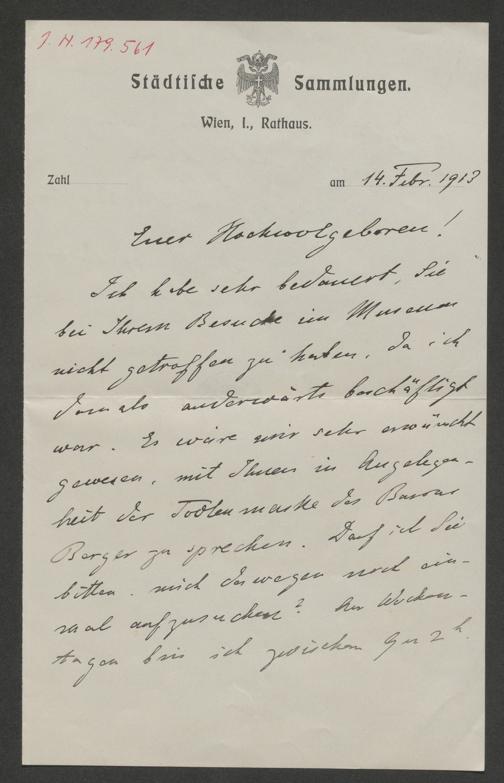 J. N. 179.561
Städtische Sammlungen.
Wien, I., Rathaus.
Zahl
am 14. Febr. 1913
Euer Hochwolgeboren!
Ich habe sehr bedauert, Sie
bei Ihrem Besuche im Museum
nicht getroffen zu haben, da ich
damals anderwärts beschäftigt
war. Es wäre mir sehr erwünscht
gewesen, mit Ihnen in Angelegen-
heit der Todtenmaske des Barons
Berger zu sprechen. Darf ich Sie
bitten, mich deswegen noch ein-
mal aufzusuchen? An Wochen-
tagen bin ich zwischen 9 u 2 h.